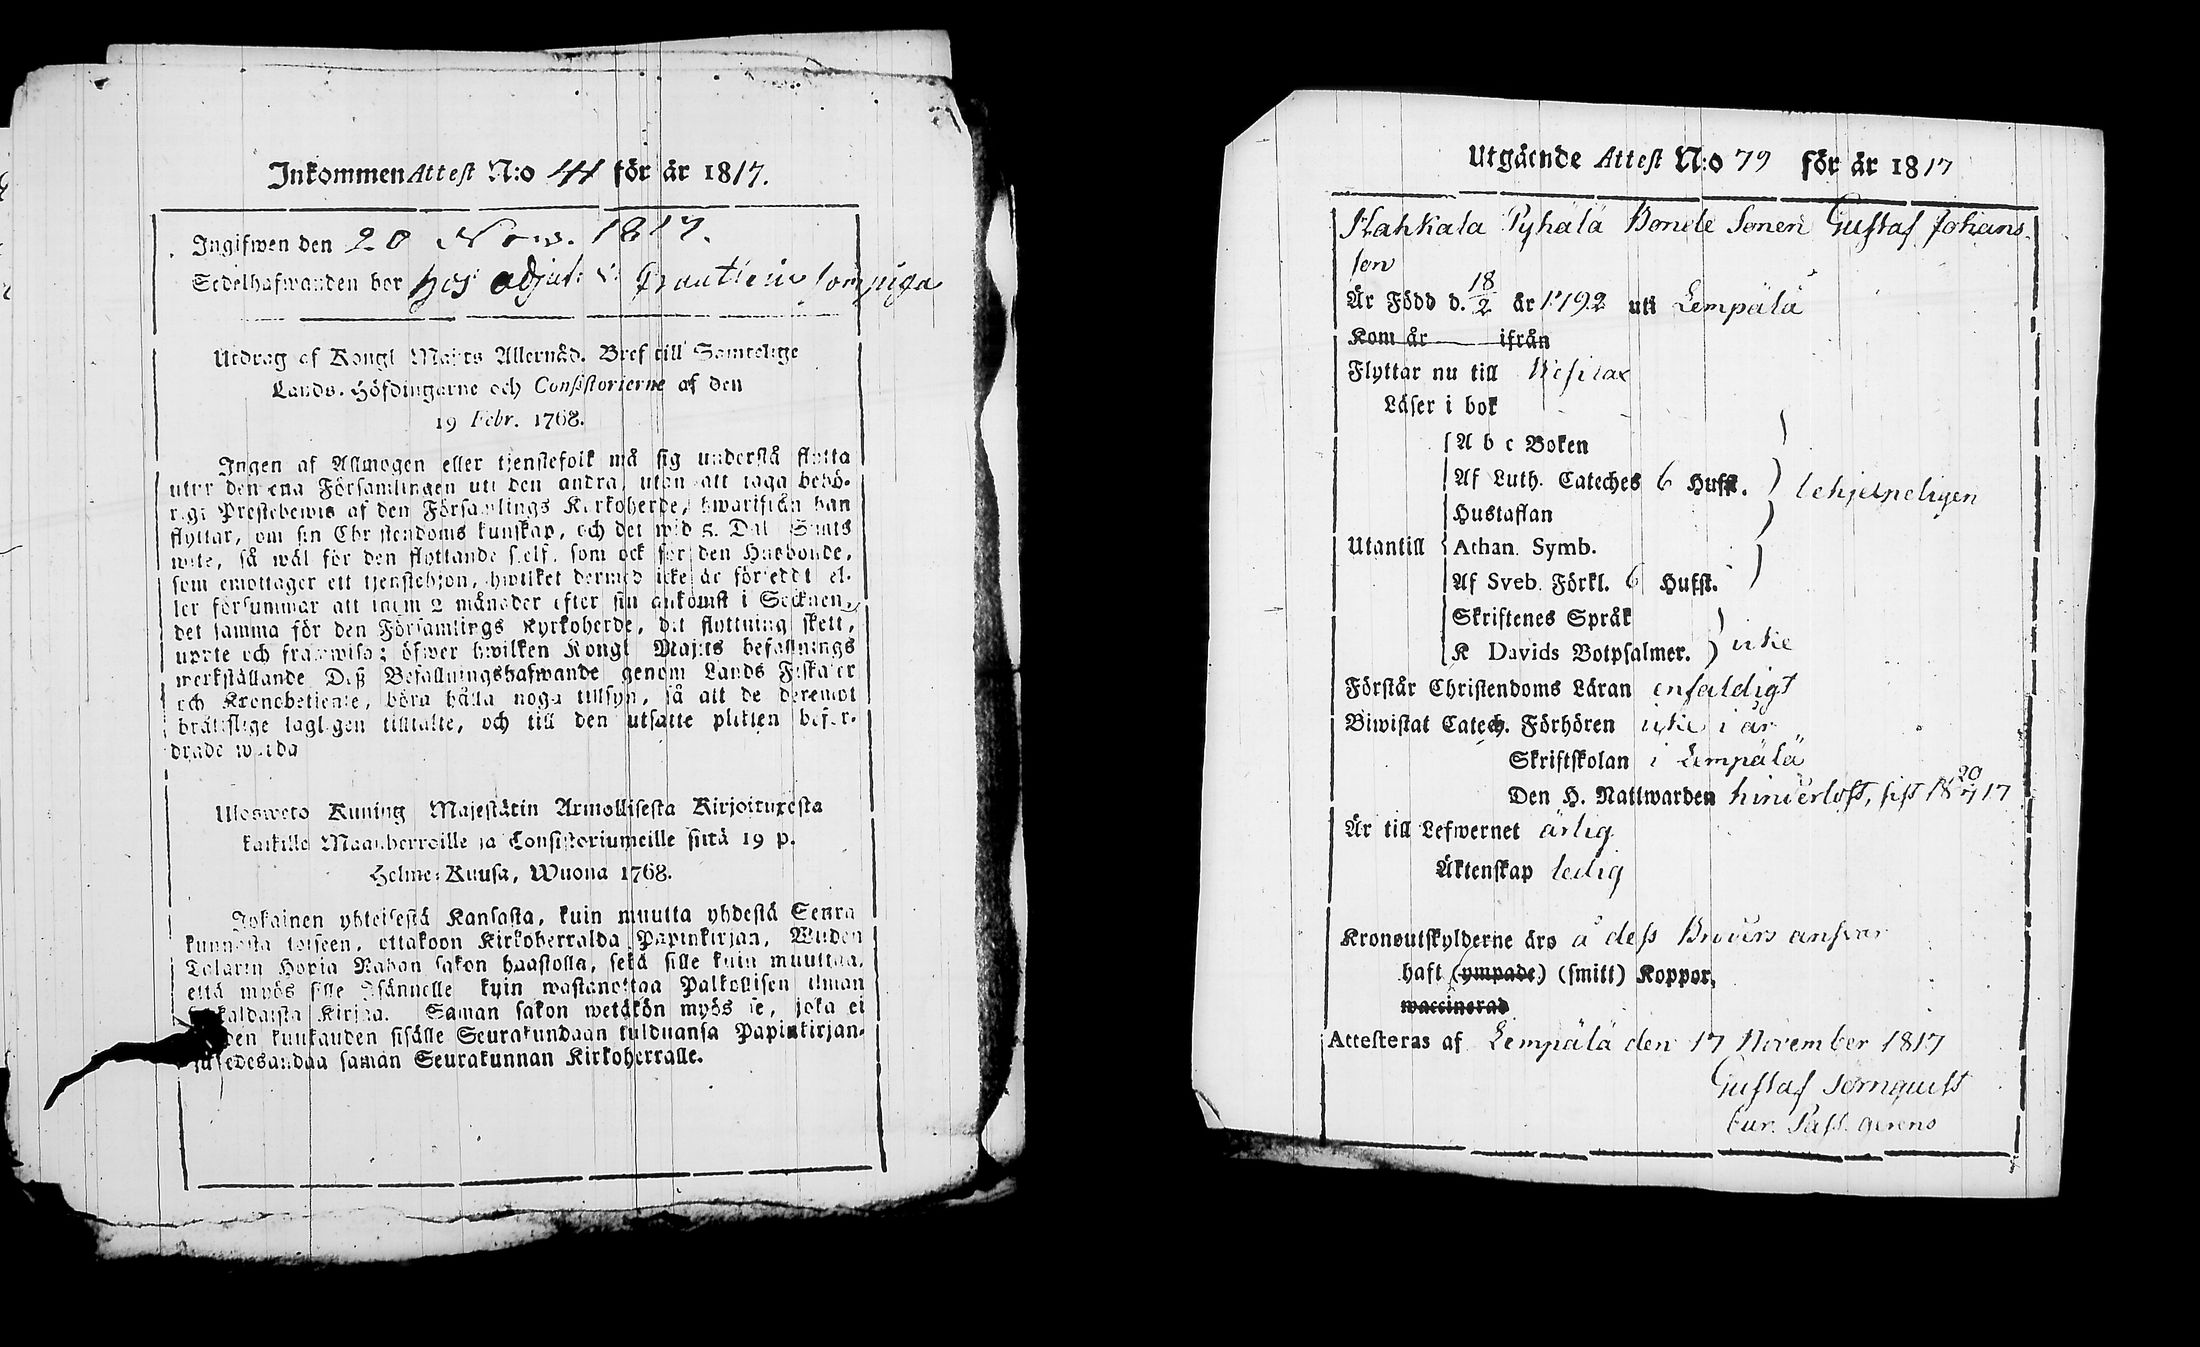 Inkommen Attest N:o 44 för år 1817.
Ingifwen den 20 Nov. 1817.
Sedelhafwanden bor hos adjut:
Utdrag af Kongl Maj:ts Allernåd. Bref till Samtelige
Lands-Höfdingarne och Consistorierne af den
19 Febr. 1768.
Ingen af Allmogen eller tjenstefolk må sig understå flytta
utur den ena Församlingen uti den andra, utan att taga behö-
rigt Prestebewis af den Församlings Kyrkoherde, hwarifrån han
flyttar, om sin Christendoms kunskap, och det wid 5. Dal. S:mts
wite, så wäl för den flyttande sjelf, som ock för den Husbonde,
som emottager ett tjenstehjon, hwilket dermed icke är försedt el-
ler försummar att inom 2 månader efter sin ankomst i Socknen,
det samma för den Församlings Kyrkoherde, dit flyttning skett,
upte och framwisa; öfwer hwilken Kongl Maj:ts befallnings
werkställande Deß Befallningshafwande genom Lands Fiskaler
och Kronobetjente, böra hålla noga tillsyn, så att de deremot
brottslige lagligen tilltalte, och till den utsatte plikten befor-
drade warda
Ulosweto Kuning Majestätin Armollisesta Kirjoituxesta
kaikille Maanherroille ja Consistoriumeille siitä 19 p.
Helme-Kuusa, Wuona 1768.
Jokainen yhteisestä Kansasta, kuin muutta yhdestä Seura
kunnasta toiseen, ottakoon Kirkoherralda Papinkirjan, Wiiden
Talarin Hopia Rahan sakon haastolla, sekä sille kuin muuttaa,
että myös sille Isännelle kuin wastanottaa Palkollisen ilman
Kirjaa. Saman sakon wetäkön myös se, joka ei
kuukauden sisälle Seurakundaan tulduansa Papinkirjan-
sa edesandaa saman Seurakunnan Kirkoherralle.
Utgående Attest N:o 79 för år 1817
Hahkala Pyhälä Bonde Sonen Gustaf Johans-
son
Är Född d. 18/2 år 1792 uti Lempälä
Kom år ifrån
Flyttar nu till Wesilax
Läser i bok
A b c Boken
Af Luth. Cateches 6 Hufst. behjelpeligen
Hustaflan
Utantill Athan. Symb.
Af Sveb. Förkl. 6 Hufst.
Skriftenes Språk
K Davids Botpsalmer. icke
Förstår Christendoms Läran enfaldigt
Biwistat Catech. Förhören icke i år
Skriftskolan i Lempälä
Den H. Nattwarden hinderlöst, sist 18 20/7 17
Är till Lefwernet ärlig
Äktenskap ledig
Kronoutskylderne äro å dess Broders answar
haft (ympade) (smitt) Koppor,
waccinerad
Attesteras af Lempälä den 17 November 1817
Gustaf
cur. Past. gerens